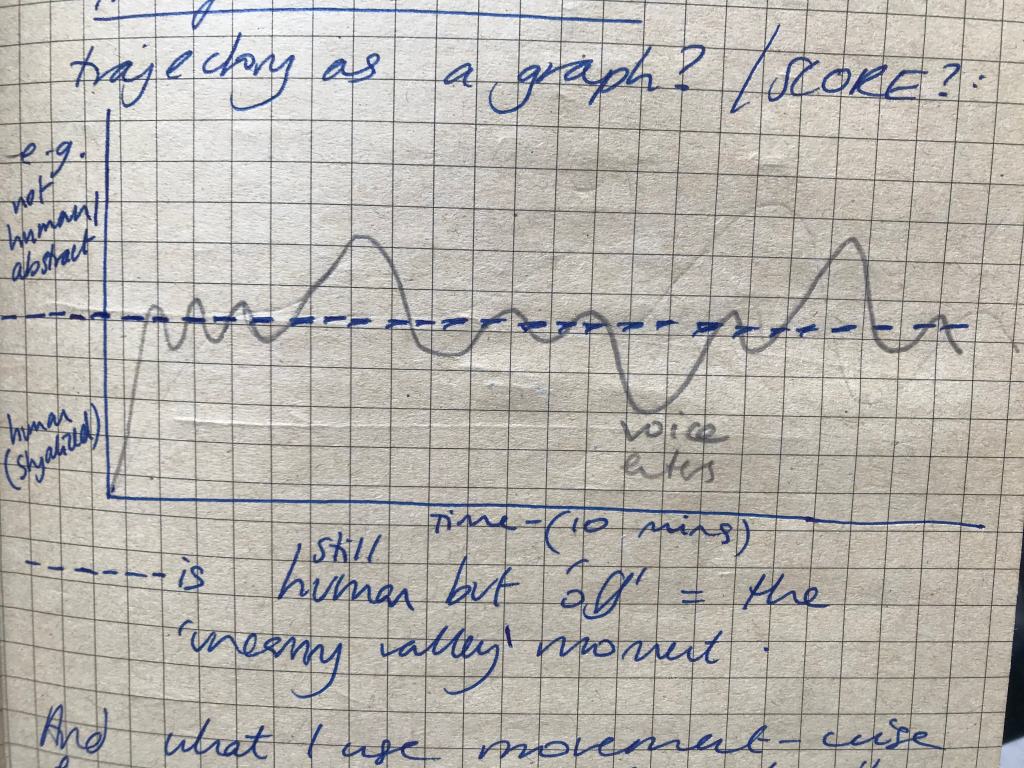 trajectory as a graph? / SCORE?:
e.g.
not
human/
abstract
human
voice
enters
Time - (10 mins)
------ is still human but 'off' = the
'uncanny valley' moment.
And what I use movement-wise